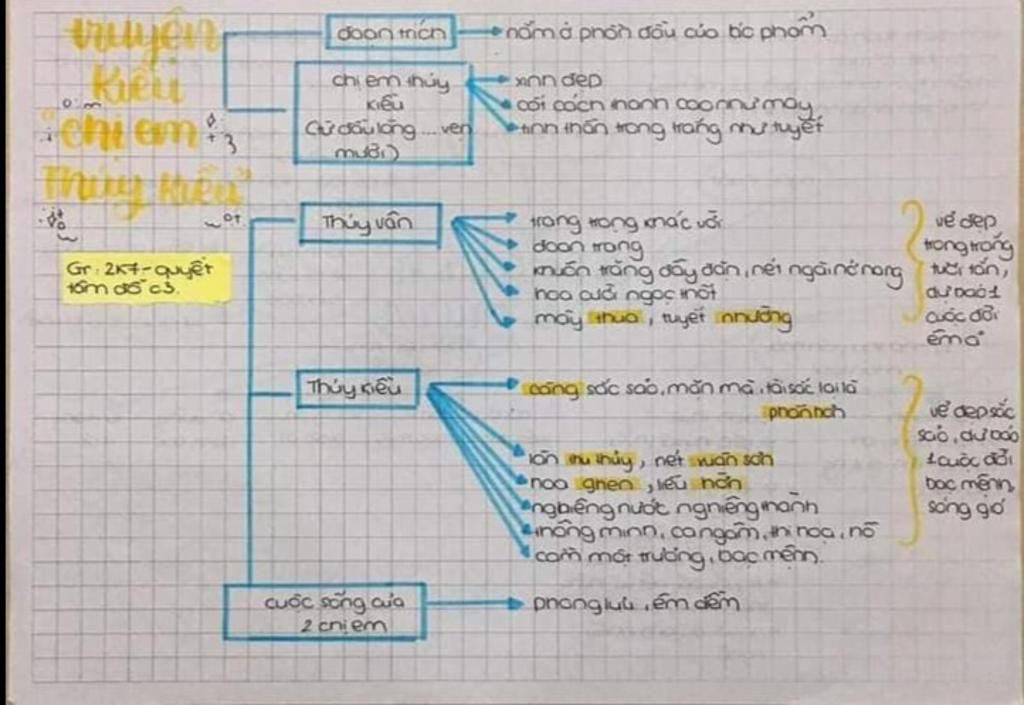 truyện
Kiều
"chị em
Thúy Kiều"
Gr: 2K7-quyết
tâm đỗ c3.
đoạn trích
nằm ở phần đầu của tác phẩm
chị em thúy
kiều
(từ đầu lòng ... vẹn
mười)
xinh đẹp
cốt cách thanh cao như mây
tinh thần trong trắng như tuyết
Thúy vân
trang trọng khác vời
đoan trang
khuôn trăng đầy đặn, nét ngài nở nang
hoa cười ngọc thốt
mây thua, tuyết nhường
vẻ đẹp
trong trắng,
tươi tắn,
dự báo 1
cuộc đời
êm ả
Thúy kiều
càng sắc sảo, mặn mà, tài sắc lại là
phần hơn
làn thu thủy, nét xuân sơn
hoa ghen, liễu hờn
nghiêng nước nghiêng thành
thông minh, ca ngâm, thi họa, hồ
cầm một trương, bạc mệnh.
vẻ đẹp sắc
sảo, dự báo
1 cuộc đời
bạc mệnh,
sóng gió
cuộc sống của
2 chị em
phong lưu, êm đềm